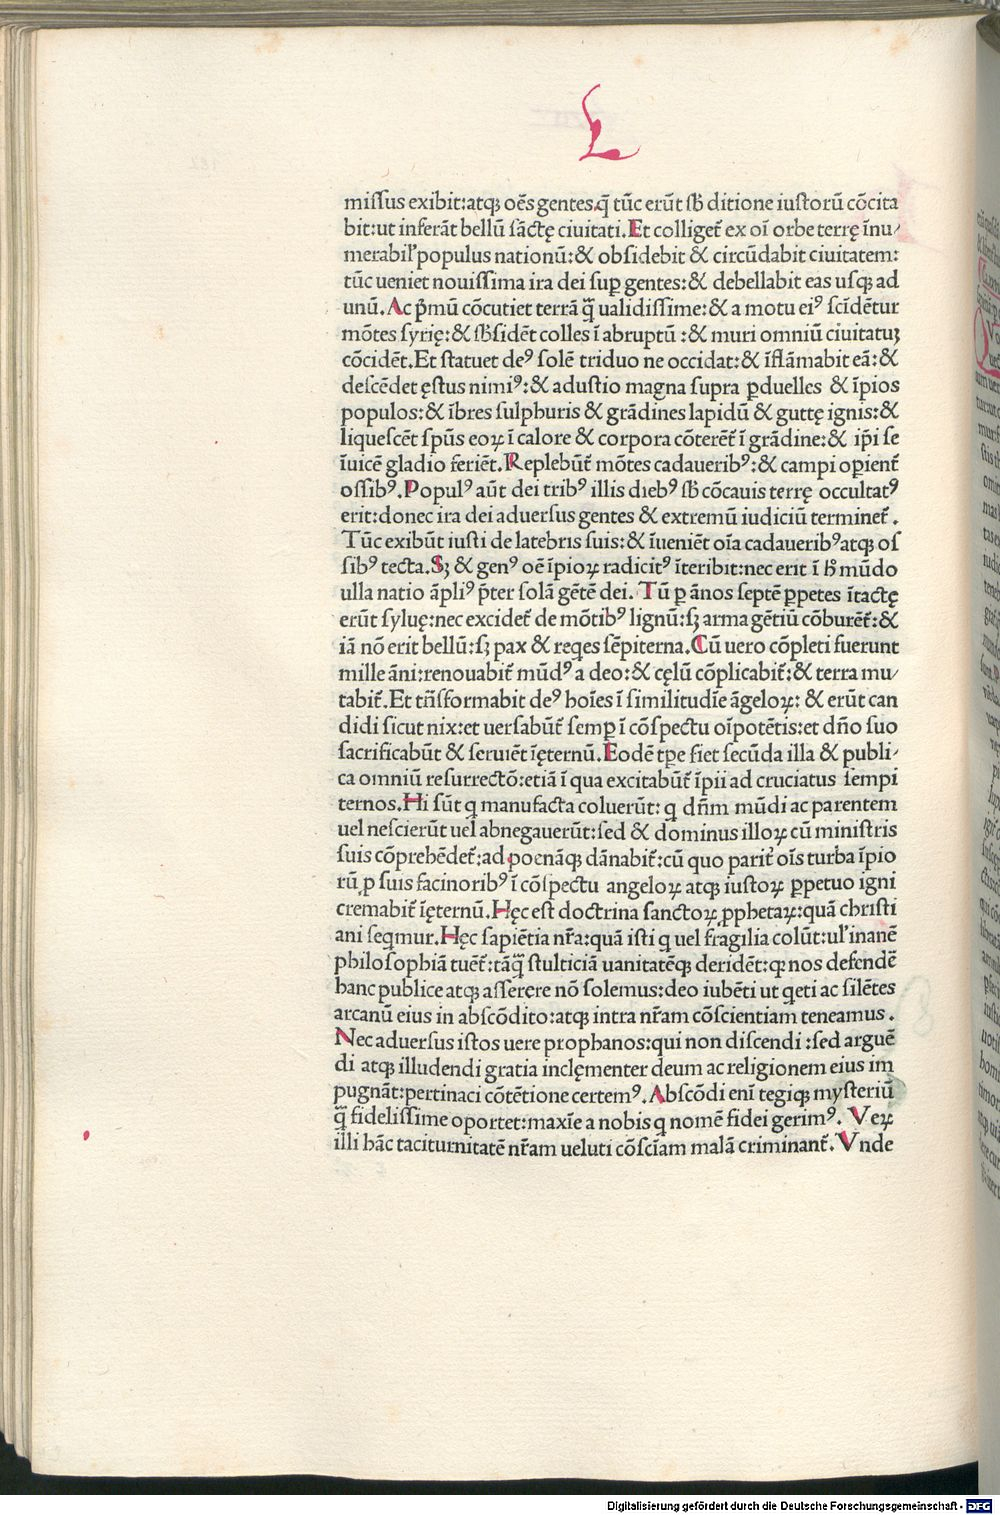 L
miſſus exibit:atqꝫ oēs gentes.q̄ tūc erūt ſƀ ditione iuſtorū cōcita
bit:ut inferāt bellū ſāctę ciuitati.Et colliget̄ ex oī orbe terrę īnu⸗
merabil̛ populus nationū:& obſidebit & circūdabit ciuitatem:
tūc ueniet nouiſſima ira dei ſuꝑ gentes:& debellabit eas uſqꝫ ad
unū.Ac p̄mū cōcutiet terrā q̄ ualidiſſime:& a motu eiꝰ ſcīdētur
mōtes ſyrię:& ſƀſidēt colles ī abruptū :& muri omniū ciuitatuꝫ
cōcidēt.Et ſtatuet deꝰ ſolē triduo ne occidat:& īflāmabit eā:&
deſcēdet ęſtus nimiꝰ:& aduſtio magna ſupra ꝑduelles & īpios
populos:& ībres ſulphuris & grādines lapidū & guttę ignis:&
liqueſcēt ſpūs eoꝝ ī calore & corpora cōteret̄ ī grādine:& ip̄i ſe
īuicē gladio feriēt.Replebūt̄ mōtes cadaueribꝰ:& campi oꝑient̄
oſſibꝰ.Populꝰ aūt dei tribꝰ illis diebꝰ ſƀ cōcauis terrę occultatꝰ
erit:donec ira dei aduerſus gentes & extremū iudiciū terminet̄ .
Tūc exibūt iuſti de latebris ſuis:& īueniēt oīa cadaueribꝰatqꝫ oſ
ſibꝰ tecta.Sꝫ & genꝰ oē īpioꝝ radicitꝰ īteribit:nec erit ī ħ mūdo
ulla natio āpliꝰ p̄ter ſolā gētē dei. Tū ꝑ ānos ſeptē ꝑpetes ītactę
erūt ſyluę:nec excidet̄ de mōtibꝰ lignū:ſꝫ arma gētiū cōburet̄:&
iā nō erit bellū:ſꝫ pax & reqes ſēpiterna.Cū uero cōpleti fuerunt
mille āni:renouabit̄ mūdꝰ a deo:& cęlū cōplicabit̄:& terra mu⸗
tabit̄.Et trāſformabit deꝰ hoīes ī ſimilitudīe āgeloꝝ: & erūt can
didi ſicut nix:et uerſabūt̄ ſemꝑ ī cōſpectu oīpotētis:et dño ſuo
ſacrificabūt & ſeruiēt īęternū.Eodē tꝑe fiet ſecūda illa & publi⸗
ca omniū reſurrectō:etiā ī qua excitabūt̄ īpii ad cruciatus ſempi
ternos.Hi ſūt q manufacta coluerūt: q dn̄m mūdi ac parentem
uel neſcierūt uel abnegauerūt:ſed & dominus illoꝝ cū miniſtris
ſuis cōprebēdet̄:ad poenāqꝫ dānabit̄:cū quo parit̄ oīs turba īpio
rū ꝓ ſuis facinoribꝰ ī cōſpectu angeloꝝ atqꝫ iuſtoꝝ ꝑpetuo igni
cremabit̄ īęternū.Hęc eſt doctrina ſanctoꝝ ꝓphetaꝝ:quā chriſti
ani ſeqmur.Hęc ſapiētia nr̄a:quā iſti q uel fragilia colūt:ul̛ inanē
philoſophiā tuēt̄:tāq̄ ſtulticiā uanitatēqꝫ deridēt:qꝫ nos defendē
hanc publice atqꝫ aſſerere nō ſolemus:deo iubēti ut qeti ac ſilētes
arcanū eius in abſcōdito:atqꝫ intra nr̄am cōſcientiam teneamus .
Nec aduerſus iſtos uere prophanos:qui non diſcendi :ſed arguē
di atqꝫ illudendi gratia inclęmenter deum ac religionem eius im
pugnāt:pertinaci cōtētione certemꝰ. Abſcōdi enī tegiqꝫ myſteriū
q̄ fideliſſime oportet:maxīe a nobis q nomē fidei gerimꝰ. Veꝝ
illi hāc taciturnitatē nr̄am ueluti cōſcīam malā criminant̄. Vnde
Digitalisierung gefördert durch die Deutsche Forschungsgemeinschaft - DFG